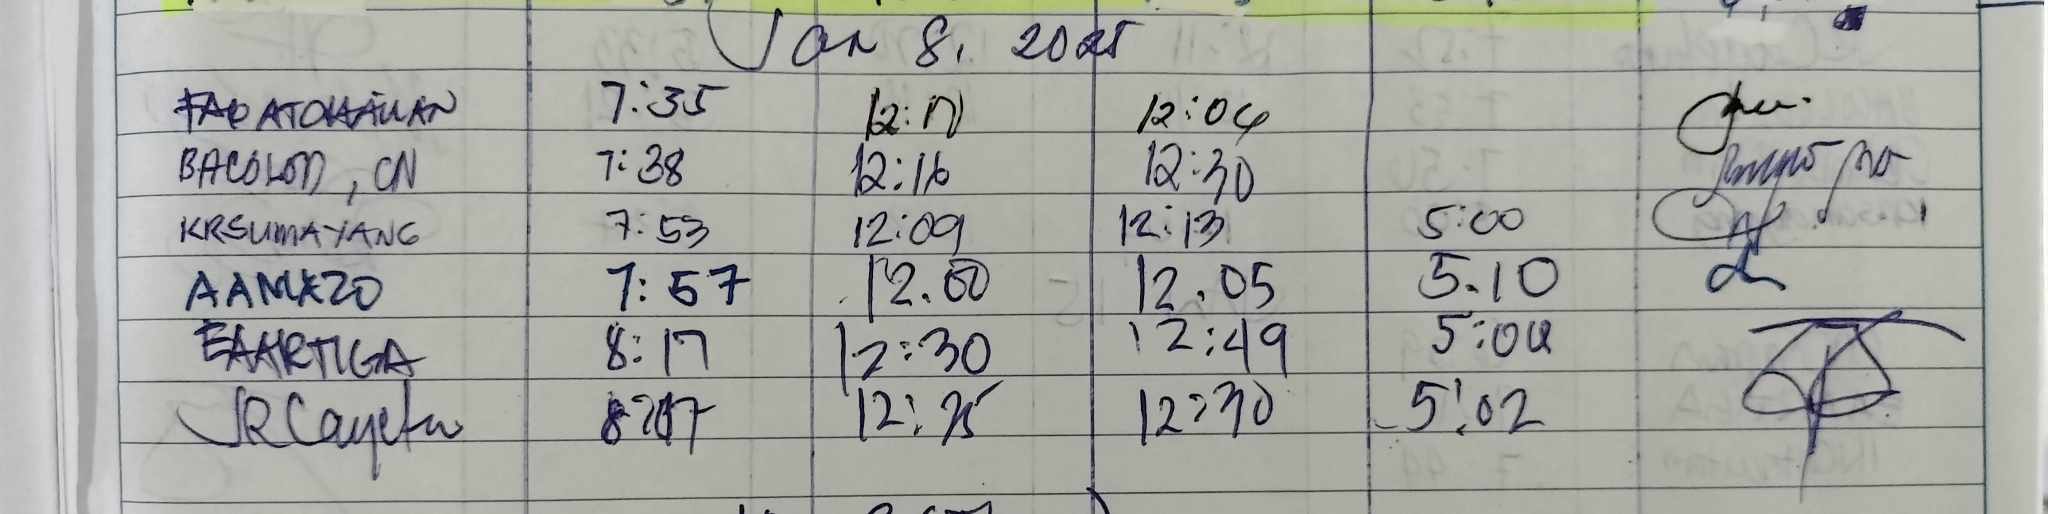 Jan 8, 2025
7:35 12:04
BACOLOD, CN 7:38 12:16 12:30
KRSUMAYANG 7:53 12:09 12:13 5:00
7:57 12.00 12.05 5.10
EAARTIGA 8:17 12:30 12:49 5:04
JRCayetu 12:30 5:02